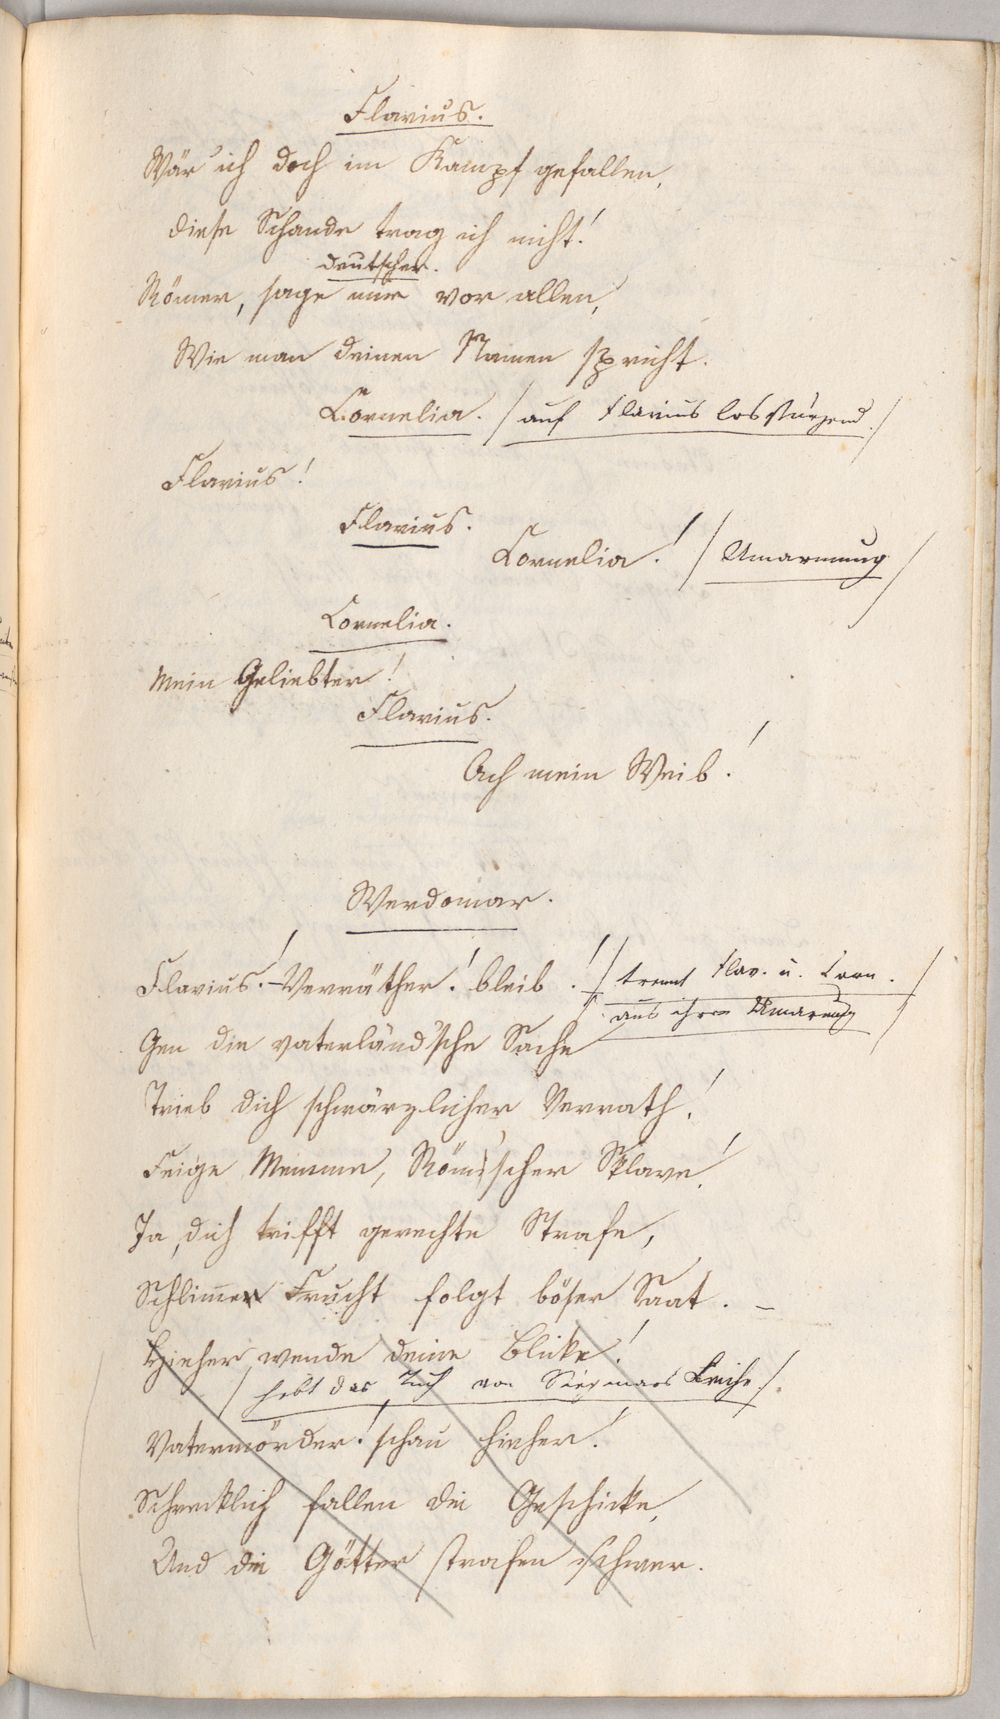 Flavius.
Wär' ich doch im Kampf gefallen,
diese Schande trag ich nicht!
deutscher.
Römer, sage mir vor allen,
Wie man deinen Namen spricht.
Cornelia. / auf Flavius losstürzend. /
Flavius!
Flavius.
Cornelia! / Umarmung /
Cornelia.
Mein Geliebter!
Flavius.
Ach mein Weib!
Werdomar.
Flavius! – Verräther! bleib! / trennt Flav. u. Corn. /
aus ihrer Umarmung /
Gen die vaterländ'sche Sache
Trieb dich schwärzlicher Verrath!
Feige Memme, Röm'scher Sklave!
Ja, dich trifft gerechte Strafe,
Schlimmer Frucht folgt böser Saat. –
Hieher wende deine Blicke!
/ hebt das Tuch von Siegmars Leiche /.
Vatermörder! schau hieher!
Schrecklich fallen die Geschicke,
Und die Götter strafen schwer.